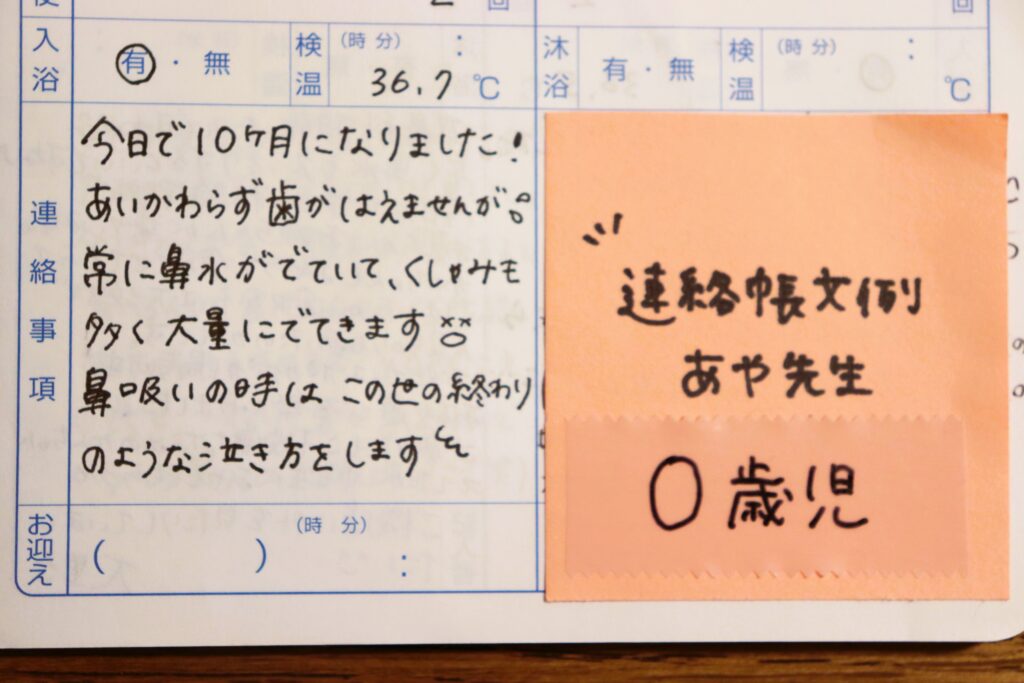 回
回
入浴
有・無
検温
(時 分)
:
36.7 ℃
沐浴
有・無
検温
(時 分)
:
℃
連絡事項
今日で10ケ月になりました!
あいかわらず歯がはえませんが
常に鼻水がでていて、くしゃみも
多く大量にでてきます
鼻吸いの時は この世の終わり
のような泣き方をします
お迎え
(時 分)
( ) :
連絡帳文例
あや先生
0歳児